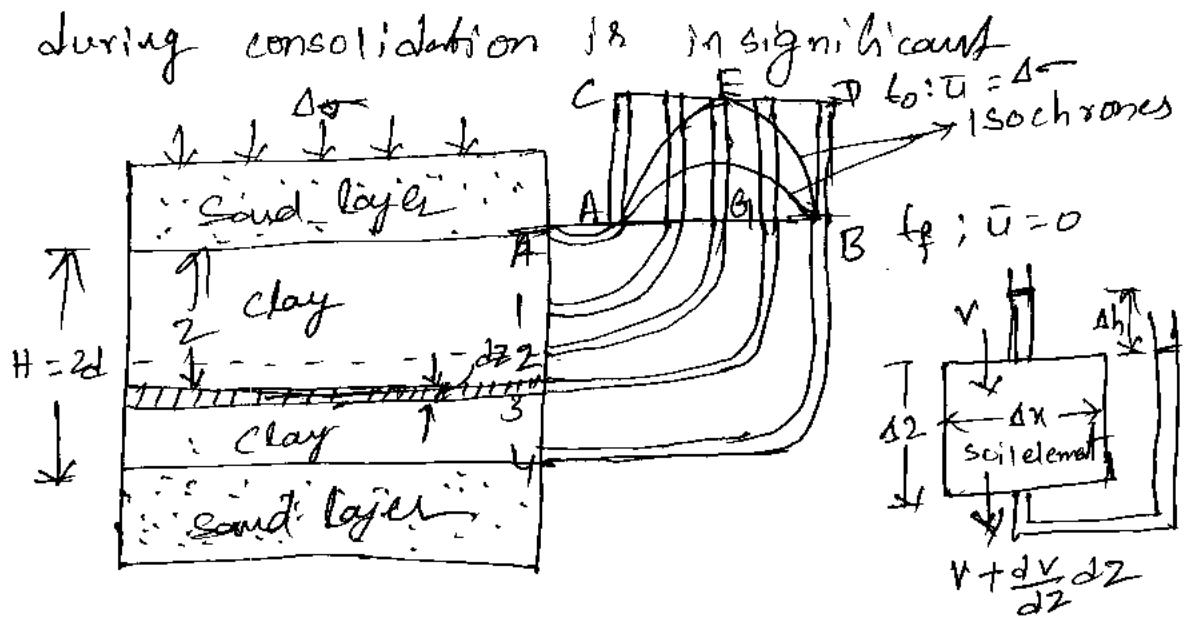 during consolidation is insignificant
Δσ
C E D t₀: ū = Δσ
Isochrones
Sand layer
A G B
t_f ; ū = 0
A
1
z clay
2
dz
H = 2d
3
clay
4
Sand layer
V
Δh
Δz
Δx
soil element
V + dv/dz dz